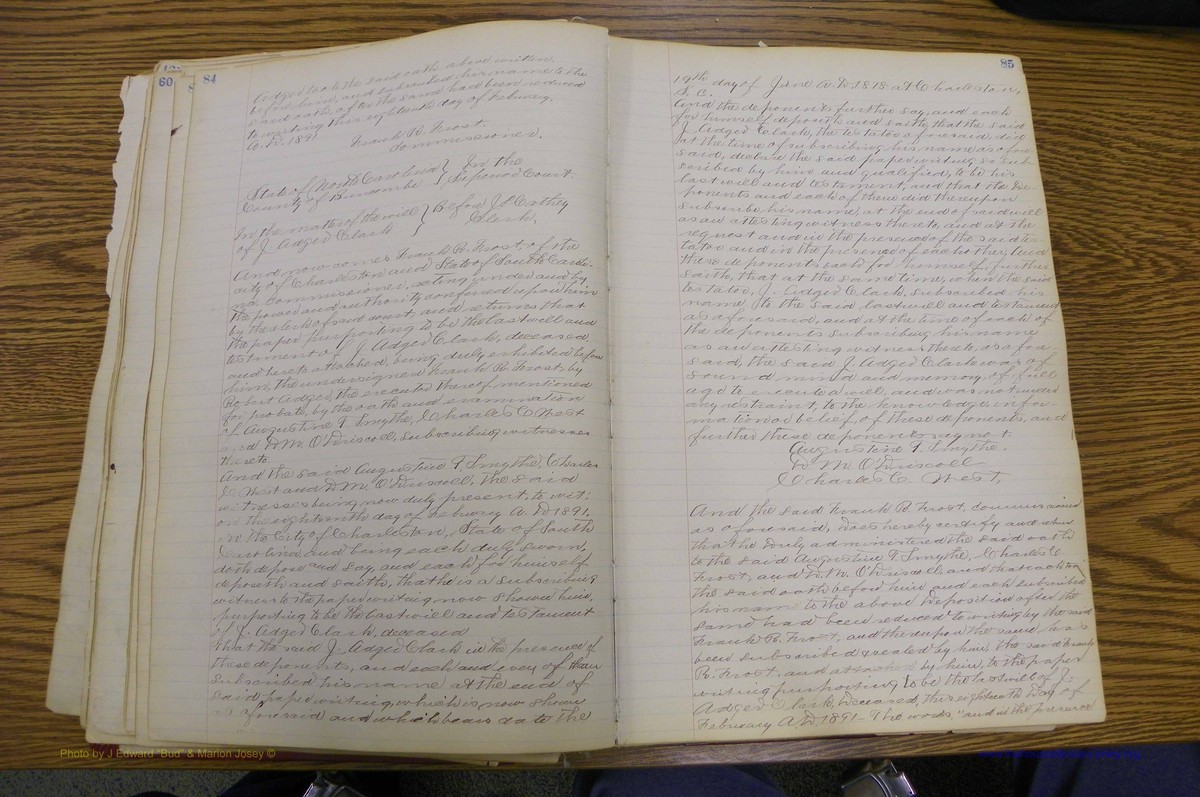 60
84
Adger took the said oath above written,
before him, and subscribed her name to the
said oath after the same had been reduced
to writing this eighteenth day of Febuery,
A. D. 1891
Frank R. Frost.
Commissioner.
State of North Carolina } In the
County of Buncombe } Superior Court.
In the matter of the will } Before J. L. Cathey
of J. Adger Clark } Clerk.
And now comes Frank R. Frost, of the
city of Charleston and State of South Caroli-
na commissioner, acting under and by
the power and authority conferred upon him
by the clerk of said court, and returns that
the paper purporting to be the last will and
testament of J. Adger Clark, deceased,
and hereto attached, being duly exhibited before
him, the undersigned Frank R. Frost, by
Robert Adger, the executor thereof mentioned
for probate, by the oath and examination
of Augustine T. Smythe, Charles C. West
and W. M. O'Driscoll, subscribing witnesses
thereto.
And the said Augustine T. Smythe, Charles
C. West and W. M. O'Driscoll, the said
witnesses being now duly present, to wit:
on the eighteenth day of Febuery A. D 1891.
in the City of Charleston, State of South
Carolina, and being each duly sworn,
doth depose and say, and each for himself
deposeth and saith, that he is a subscribing
witness to the paper writing now shown him,
purporting to be the last will and testament
of J. Adger Clark, deceased
that the said J. Adger Clark in the presence of
these deponents, and each and every of them
subscribed his name at the end of
said paper writing, which is now shown
as aforesaid and which bears date the
85
19th day of June A. D. 18 at Charleston,
S. C.
And the deponents further say, and each
for himself deposeth and saith, that the said
J. Adger Clark, the testator aforesaid, did
at the time of subscribing his name as afore
said, declare the said paper writing, so sub-
scribed by him and qualified, to be his
last will and testament, and that the de-
ponents and each of them did thereupon
subscribe his name, at the end of said will
as an attesting witness thereto, and at the
request and in the presence of the said tes-
tator and in the presence of each other, and
these deponents, each for himself, further
saith, that at the same time, when the said
testator, J. Adger Clark, subscribed his
name, to the said last will and testament
as aforesaid, and at the time of each of
the deponents subscribing his name
as an attesting witness thereto, as afore
said, the said J. Adger Clark was of
sound mind and memory, of full
age to execute a will, and was not under
any restraint, to the knowledge, infor-
mation or belief, of these deponents, and
further these deponents say not.
Augustine T. Smythe.
W M. O'Driscoll
Charles C. West.
And the said Frank R. Frost, commissioner
as aforesaid, does hereby certify and return
that he duly administered the said oath
to the said Augustine T. Smythe, Charles C.
Frost, and W. M. O'Driscoll and that each took
the said oath before him, and each subscribed
his name to the above deposition after the
same had been reduced to writing by the said
Frank R. Frost, and thereupon the same has
been subscribed & sealed by him, the said Frank
R. Frost, and attached by him, to the paper
writing purporting to be the last will of J.
Adger Clark, deceased, this eighteenth day of
February A. D 1891- The words "and in the presence
Photo by J Edward "Bud" & Marion Josey ©